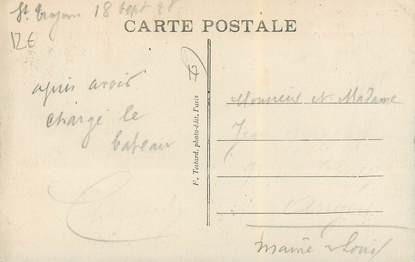 St Trojan 18 Sept 28
12€
CARTE POSTALE
après avoir
chargé le
bateau
F. Testard, photo-édit. Paris
Monsieur et Madame
Maine & Loire